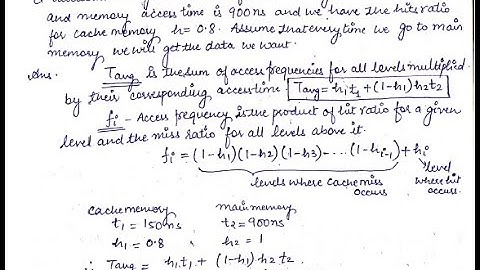 and memory access time is 900ns and we have the hit ratio
for cache memory h=0.8. Assume that every time we go to main
memory we will get the data we want.
Ans. Tavg is the sum of access frequencies for all levels multiplied
by their corresponding access time Tavg = h1t1 + (1-h1)h2t2
fi - Access frequency is the product of hit ratio for a given
level and the miss ratio for all levels above it.
fi = (1-h1)(1-h2)(1-h3)-....(1-hi-1) + hi
levels where cache miss occurs
level where hit occurs.
cache memory main memory
t1 = 150ns t2 = 900ns
h1 = 0.8 h2 = 1
∴ Tavg = h1t1 + (1-h1)h2t2.